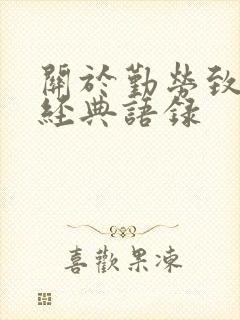 關於勤勞致
經典語録
喜歡果凍